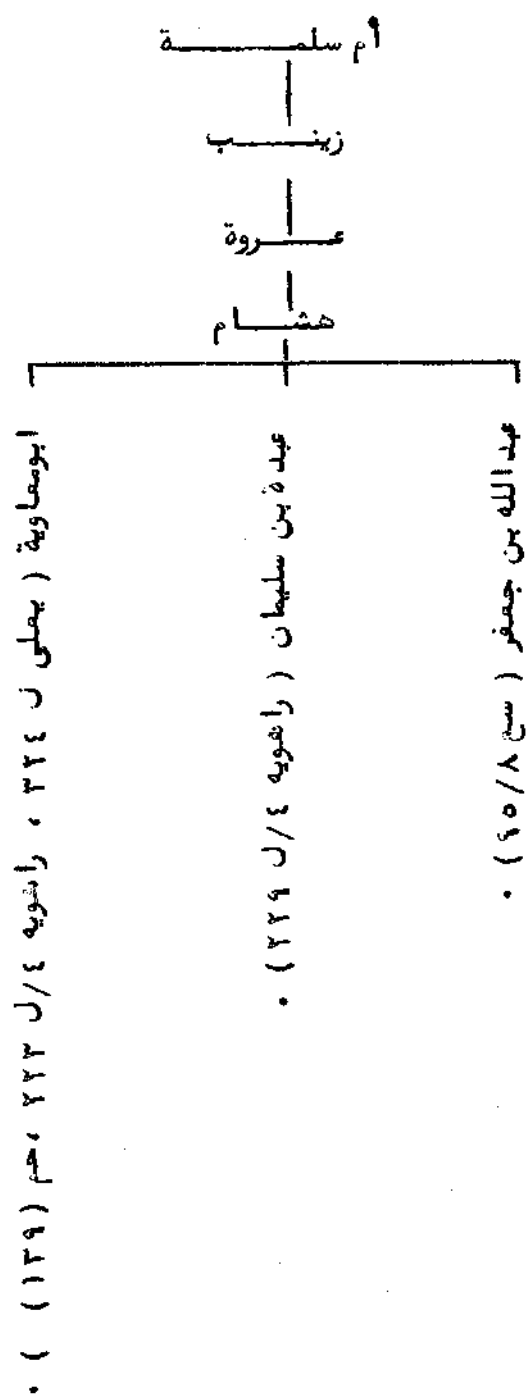 أم سلمـــــــة
زينــــب
عــــروة
هشــــام
عبدالله بن جعفر ( سع ٨/٩٥ ) .
عبدة بن سليمان ( راهويه ٤/ل ٢٢٩ ) .
ابومعاوية ( يعلى ل ٣٢٤ ، راهويه ٤/ل ٢٢٣ ، حم (١٣٩) ) .